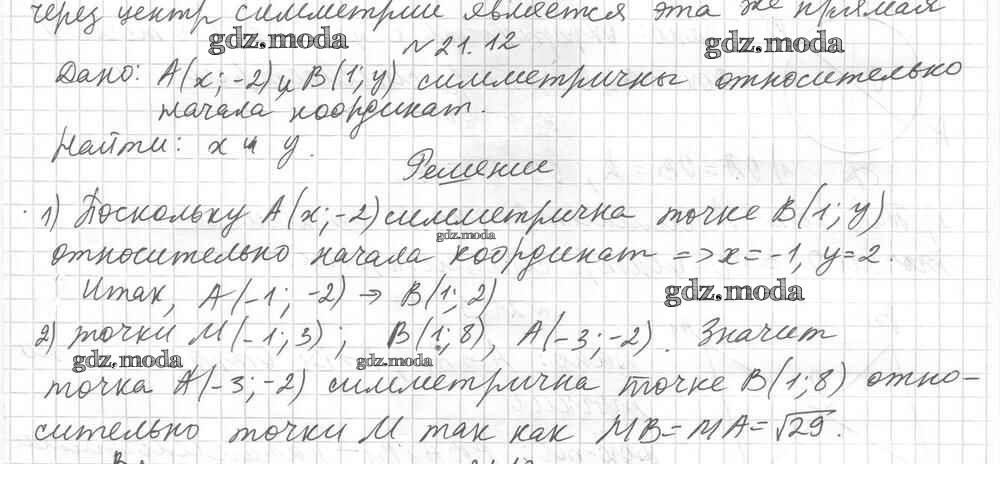 через центр симметрии является эта же прямая
gdz.moda
№21.12
gdz.moda
Дано: A(x; -2) и B(1; y) симметричны относительно
начала координат.
Найти: x и y.
Решение
1) Поскольку A(x; -2) симметрична точке B(1; y)
gdz.moda
относительно начала координат => x = -1, y = 2.
Итак, A(-1; -2) → B(1; 2)
gdz.moda
2) точки M(-1; 3); B(1; 8), A(-3; -2). Значит
gdz.moda
gdz.moda
точка A(-3; -2) симметрична точке B(1; 8) отно-
сительно точки M. так как MB = MA = √29.